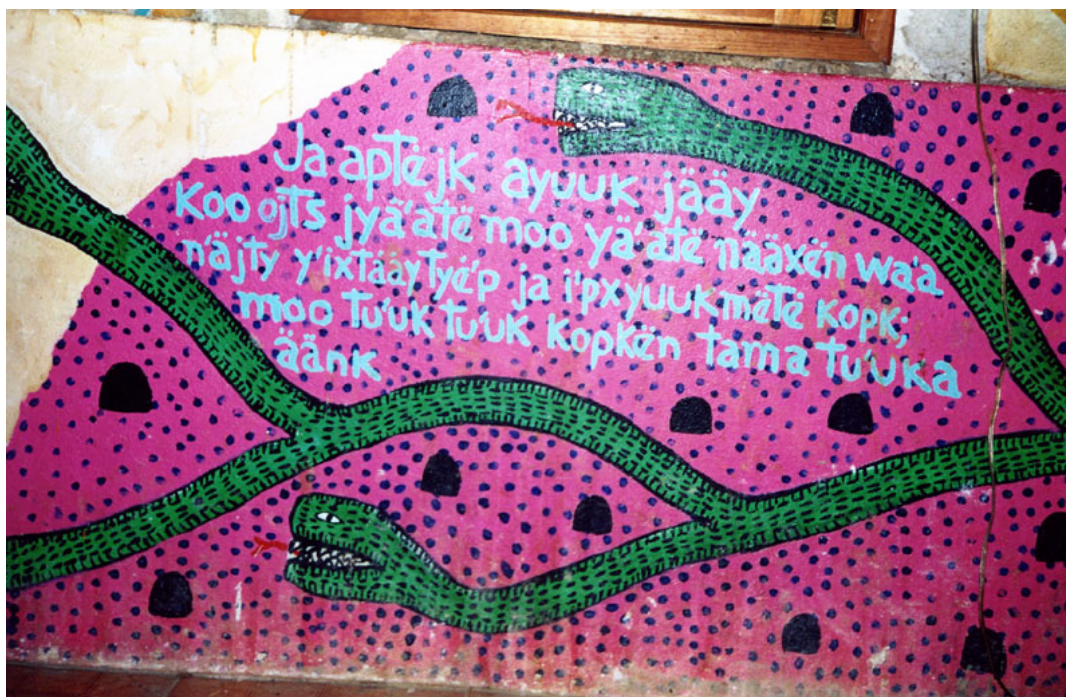 Ja aptëjk ayuuk jääy
koo ojts jyä'atë moo yä'atë nääxën wa'a
n'äjty y'ixtääytyë'p ja i'pxyuukmëtë kopk;
moo tu'uk tu'uk kopkën tama tu'uka
äänk